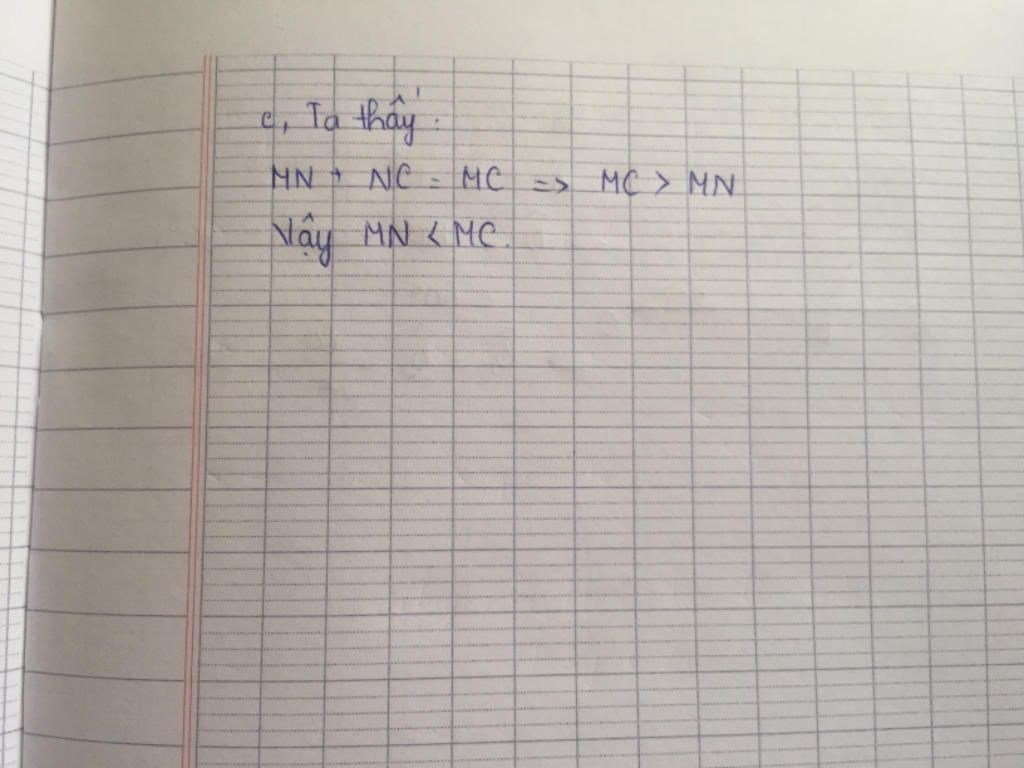 c, Ta thấy :
MN + NC = MC => MC > MN
Vậy MN < MC.